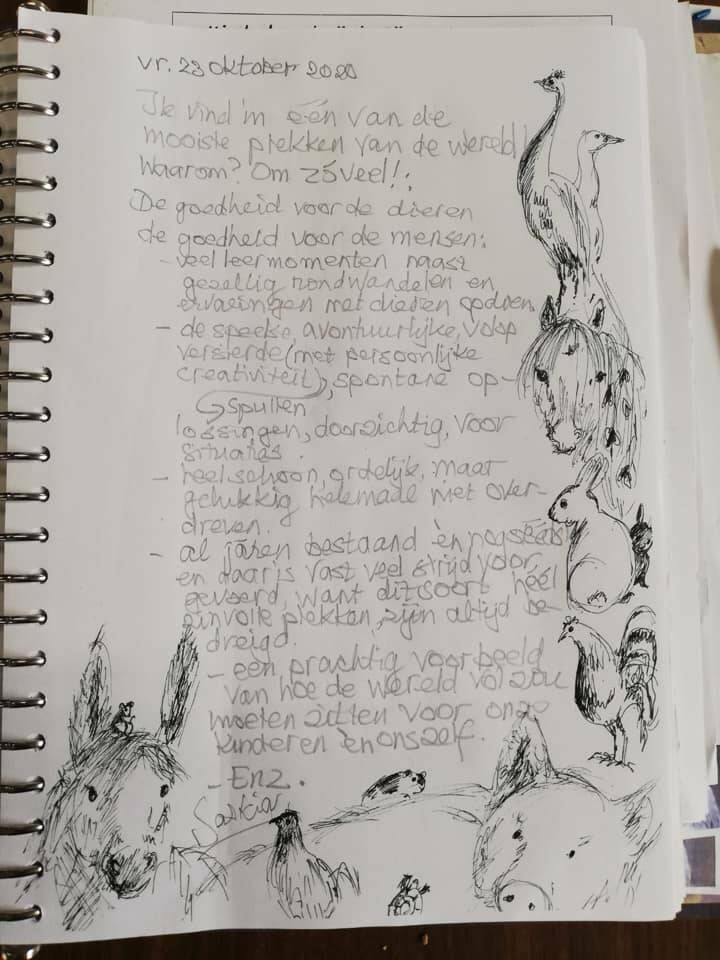 vr. 23 oktober 2020
Ik vind 'm één van de
mooiste plekken van de wereld!
Waarom? Om zóveel!:
De goedheid voor de dieren
de goedheid voor de mensen:
- veel leermomenten naast
gezellig rondwandelen en
ervaringen met dieren opdoen
- de speelse, avontuurlijke, volop
versierde (met persoonlijke
creativiteit), spontane op-
spullen
lossingen, doorzichtig, voor
situaties.
- heel schoon, ordelijk, maar
gelukkig helemaal niet over-
dreven.
- al járen bestaand èn nog steeds
en daar is vast veel strijd voor
gevoerd, want dit soort héél
zinvolle plekken, zijn altijd be-
dreigd.
- een prachtig voorbeeld
van hoe de wereld vol zou
moeten zitten voor onze
kinderen èn onszelf.
- Enz.
Saskia